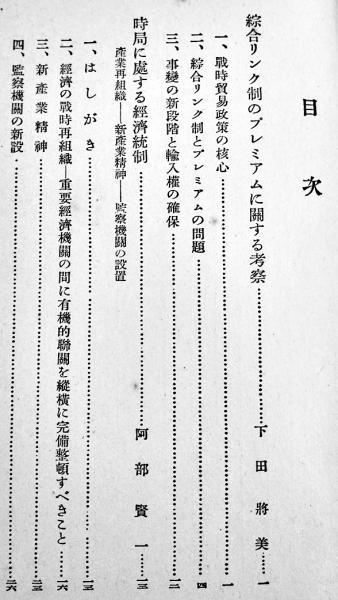 目次
綜合リンク制のプレミアムに關する考察……………下田將美…一
一、戰時貿易政策の核心……………一
二、綜合リンク制とプレミアムの問題……………四
三、事變の新段階と輸入權の確保……………一二
時局に處する經濟統制……………阿部賢一…一三
産業再組織――新産業精神――監察機關の設置
一、はしがき……………一三
二、經濟の戰時再組織―重要經濟機關の間に有機的聯關を縱横に完備整頓すべきこと……一六
三、新産業精神……………二三
四、監察機關の新設……………二六